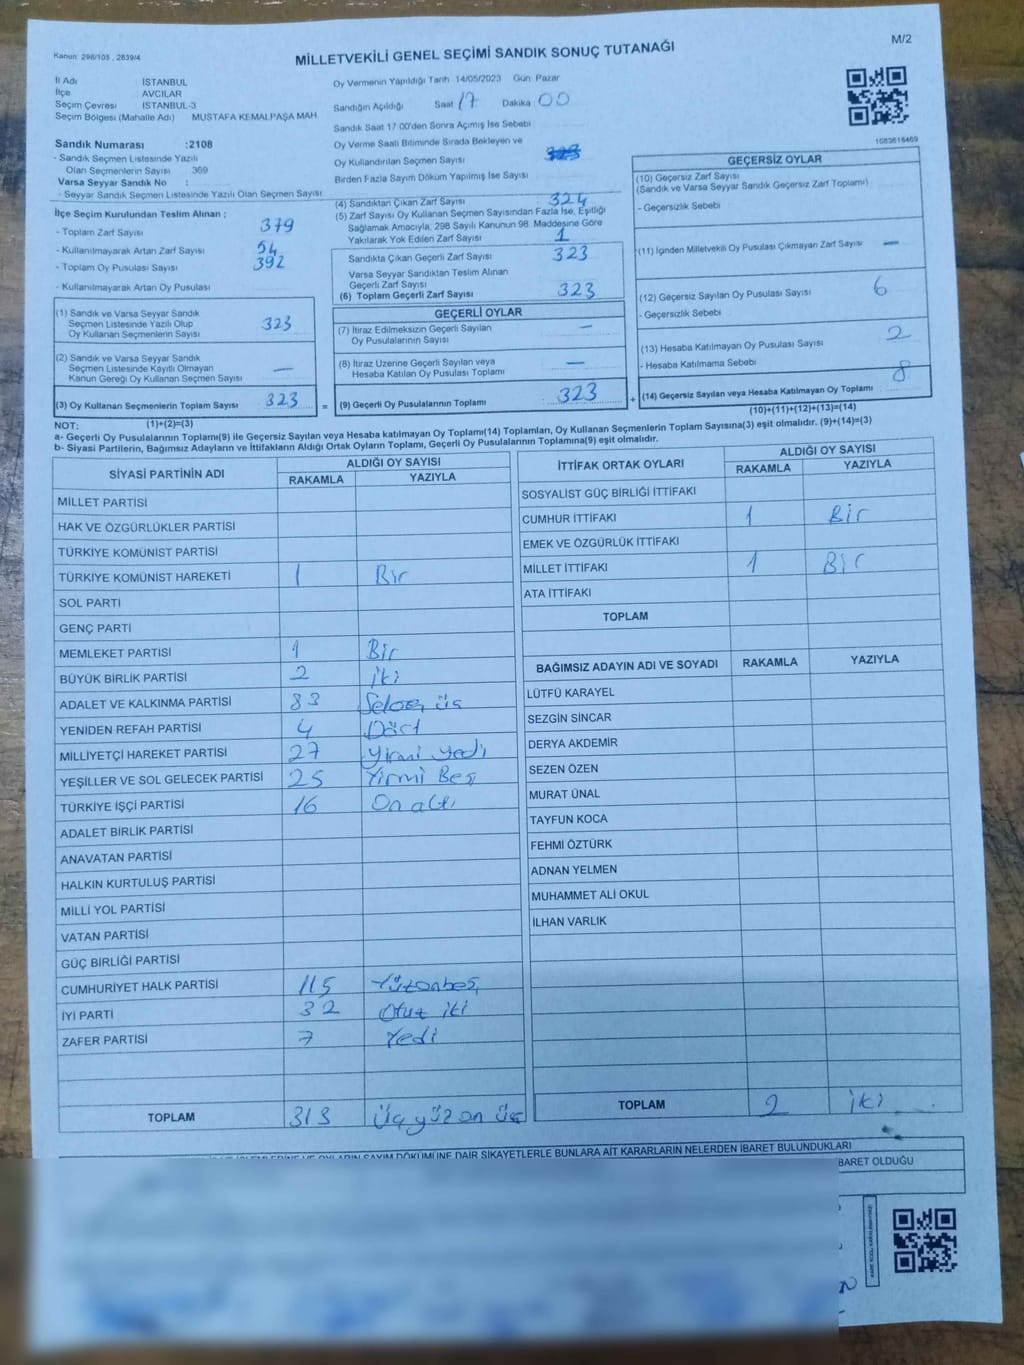 M/2
Kanun: 298/105 , 2839/4
MİLLETVEKİLİ GENEL SEÇİMİ SANDIK SONUÇ TUTANAĞI
İl Adı İSTANBUL
İlçe AVCILAR
Seçim Çevresi İSTANBUL-3
Seçim Bölgesi (Mahalle Adı) MUSTAFA KEMALPAŞA MAH
Sandık Numarası :2108
- Sandık Seçmen Listesinde Yazılı
Olan Seçmenlerin Sayısı 369
Varsa Seyyar Sandık No :
- Seyyar Sandık Seçmen Listesinde Yazılı Olan Seçmen Sayısı
İlçe Seçim Kurulundan Teslim Alınan ;
- Toplam Zarf Sayısı 379
- Kullanılmayarak Artan Zarf Sayısı 54
- Toplam Oy Pusulası Sayısı 392
- Kullanılmayarak Artan Oy Pusulası
(1) Sandık ve Varsa Seyyar Sandık
Seçmen Listesinde Yazılı Olup
Oy Kullanan Seçmenlerin Sayısı 323
(2) Sandık ve Varsa Seyyar Sandık
Seçmen Listesinde Kayıtlı Olmayan
Kanun Gereği Oy Kullanan Seçmen Sayısı —
(3) Oy Kullanan Seçmenlerin Toplam Sayısı 323 =
(1)+(2)=(3)
Oy Vermenin Yapıldığı Tarih 14/05/2023 Gün Pazar
Sandığın Açıldığı Saat 17 Dakika 00
Sandık Saat 17:00'den Sonra Açılmış İse Sebebi
Oy Verme Saati Bitiminde Sırada Bekleyen ve
Oy Kullandırılan Seçmen Sayısı
Birden Fazla Sayım Döküm Yapılmış İse Sayısı
(4) Sandıktan Çıkan Zarf Sayısı 324
(5) Zarf Sayısı Oy Kullanan Seçmen Sayısından Fazla İse, Eşitliği
Sağlamak Amacıyla, 298 Sayılı Kanunun 98. Maddesine Göre
Yakılarak Yok Edilen Zarf Sayısı 1
Sandıkta Çıkan Geçerli Zarf Sayısı 323
Varsa Seyyar Sandıktan Teslim Alınan
Geçerli Zarf Sayısı
(6) Toplam Geçerli Zarf Sayısı 323
GEÇERLİ OYLAR
(7) İtiraz Edilmeksizin Geçerli Sayılan
Oy Pusulalarının Sayısı —
(8) İtiraz Üzerine Geçerli Sayılan veya
Hesaba Katılan Oy Pusulası Toplamı —
(9) Geçerli Oy Pusulalarının Toplamı 323 +
1083616469
GEÇERSİZ OYLAR
(10) Geçersiz Zarf Sayısı
(Sandık ve Varsa Seyyar Sandık Geçersiz Zarf Toplamı)
- Geçersizlik Sebebi
(11) İçinden Milletvekili Oy Pusulası Çıkmayan Zarf Sayısı —
(12) Geçersiz Sayılan Oy Pusulası Sayısı 6
- Geçersizlik Sebebi
(13) Hesaba Katılmayan Oy Pusulası Sayısı 2
- Hesaba Katılmama Sebebi
(14) Geçersiz Sayılan veya Hesaba Katılmayan Oy Toplamı 8
(10)+(11)+(12)+(13)=(14)
NOT:
a- Geçerli Oy Pusulalarının Toplamı(9) ile Geçersiz Sayılan veya Hesaba katılmayan Oy Toplamı(14) Toplamları, Oy Kullanan Seçmenlerin Toplam Sayısına(3) eşit olmalıdır. (9)+(14)=(3)
b- Siyasi Partilerin, Bağımsız Adayların ve İttifakların Aldığı Ortak Oyların Toplamı, Geçerli Oy Pusulalarının Toplamına(9) eşit olmalıdır.
SİYASİ PARTİNİN ADI ALDIĞI OY SAYISI
RAKAMLA YAZIYLA
MİLLET PARTİSİ
HAK VE ÖZGÜRLÜKLER PARTİSİ
TÜRKİYE KOMÜNİST PARTİSİ
TÜRKİYE KOMÜNİST HAREKETİ 1 Bir
SOL PARTİ
GENÇ PARTİ
MEMLEKET PARTİSİ 1 Bir
BÜYÜK BİRLİK PARTİSİ 2 iki
ADALET VE KALKINMA PARTİSİ 83 Seksen üç
YENİDEN REFAH PARTİSİ 4 Dört
MİLLİYETÇİ HAREKET PARTİSİ 27 Yirmi yedi
YEŞİLLER VE SOL GELECEK PARTİSİ 25 Yirmi Beş
TÜRKİYE İŞÇİ PARTİSİ 16 On altı
ADALET BİRLİK PARTİSİ
ANAVATAN PARTİSİ
HALKIN KURTULUŞ PARTİSİ
MİLLİ YOL PARTİSİ
VATAN PARTİSİ
GÜÇ BİRLİĞİ PARTİSİ
CUMHURİYET HALK PARTİSİ 115 Yüzonbeş
İYİ PARTİ 32 Otuz iki
ZAFER PARTİSİ 7 Yedi
TOPLAM 313 Üçyüz on üç
İTTİFAK ORTAK OYLARI ALDIĞI OY SAYISI
RAKAMLA YAZIYLA
SOSYALİST GÜÇ BİRLİĞİ İTTİFAKI
CUMHUR İTTİFAKI 1 Bir
EMEK VE ÖZGÜRLÜK İTTİFAKI
MİLLET İTTİFAKI 1 Bir
ATA İTTİFAKI
TOPLAM
BAĞIMSIZ ADAYIN ADI VE SOYADI RAKAMLA YAZIYLA
LÜTFÜ KARAYEL
SEZGİN SİNCAR
DERYA AKDEMİR
SEZEN ÖZEN
MURAT ÜNAL
TAYFUN KOCA
FEHMİ ÖZTÜRK
ADNAN YELMEN
MUHAMMET ALİ OKUL
İLHAN VARLIK
TOPLAM 2 iki
OYLARIN SAYIM DÖKÜMÜNE DAİR ŞİKAYETLERLE BUNLARA AİT KARARLARIN NELERDEN İBARET BULUNDUKLARI
BARET OLDUĞU